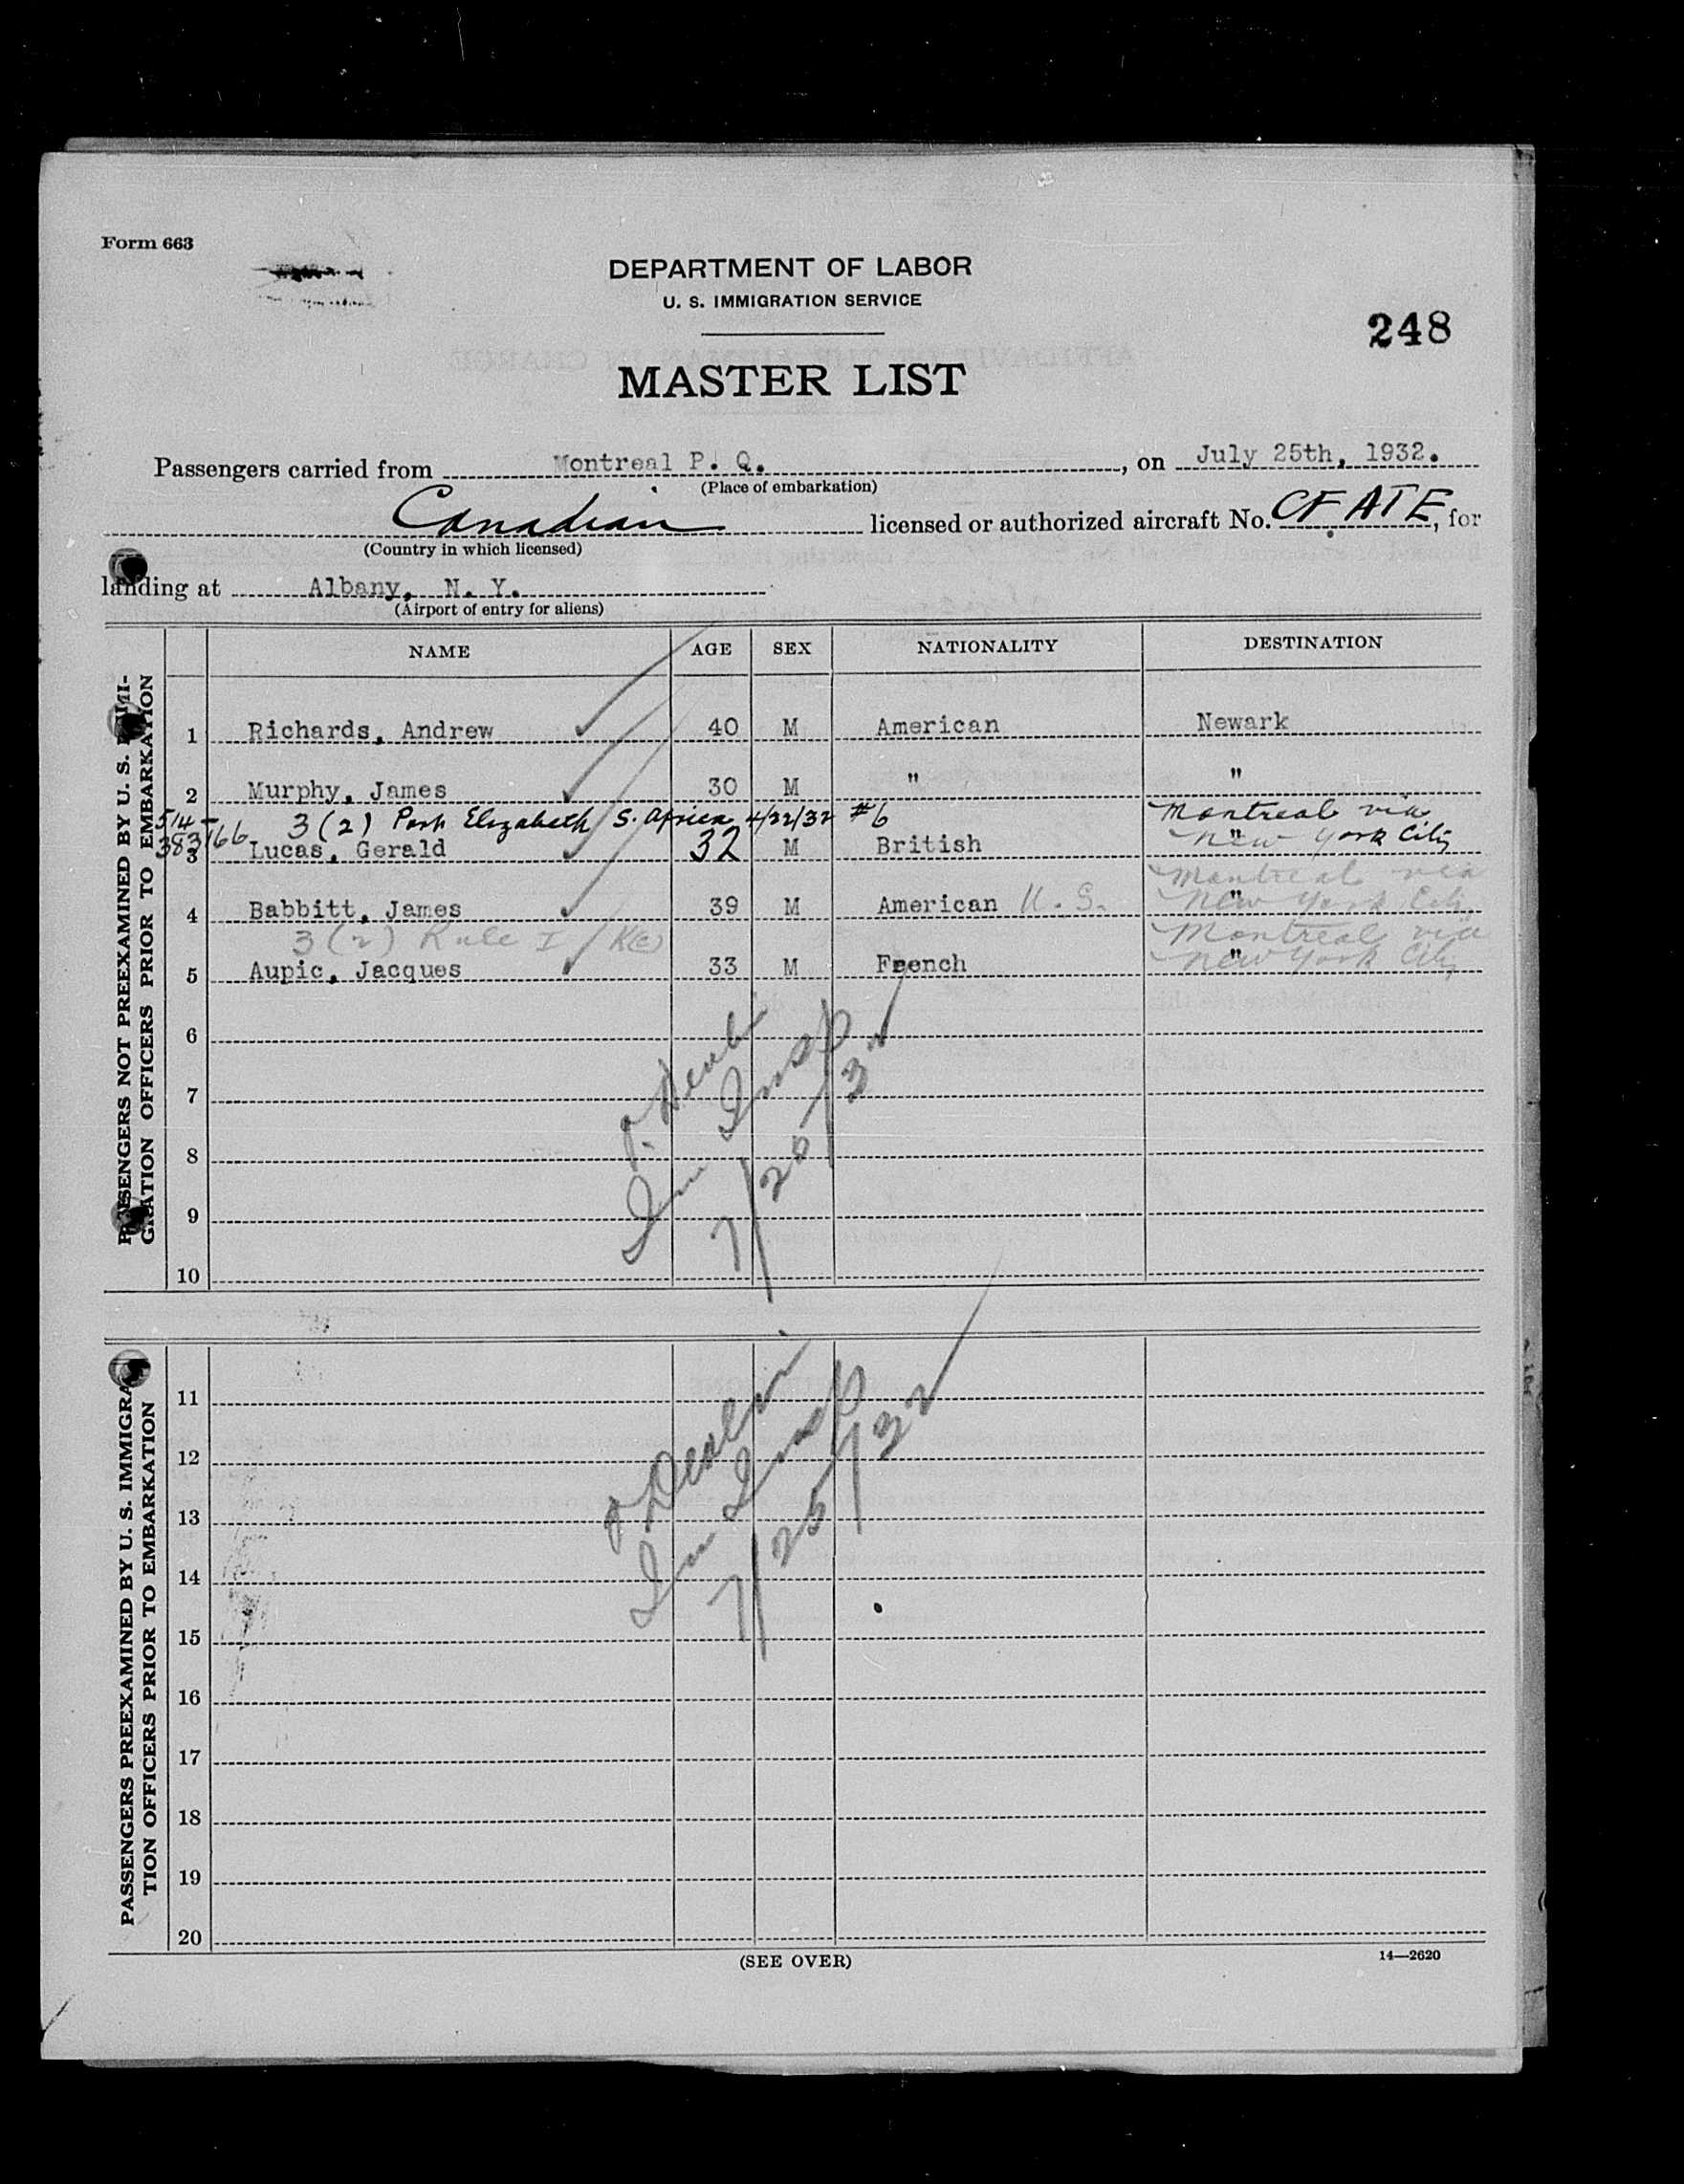 Form 663
DEPARTMENT OF LABOR
U. S. IMMIGRATION SERVICE
248
MASTER LIST
Passengers carried from Montreal P. Q., on July 25th, 1932.
(Place of embarkation)
Canadian licensed or authorized aircraft No. CF ATE, for
(Country in which licensed)
landing at Albany, N. Y.
(Airport of entry for aliens)
NAME AGE SEX NATIONALITY DESTINATION
PASSENGERS NOT PREEXAMINED BY U. S. IMMI-
GRATION OFFICERS PRIOR TO EMBARKATION
1 Richards, Andrew 40 M American Newark
2 Murphy, James 30 M " "
514- 3(2) Port Elizabeth S. Africa 4/22/32 #6 Montreal via
383166 New York City
3 Lucas, Gerald 32 M British "
Montreal via
New York City
4 Babbitt, James 39 M American U. S. "
3(2) Rule I Montreal via
New York City
5 Aupic, Jacques 33 M French "
6
7
8
9
10
Im Insp
7/25/32
PASSENGERS PREEXAMINED BY U. S. IMMIGRA-
TION OFFICERS PRIOR TO EMBARKATION
11
12
13
14
15
16
17
18
19
20
Im Insp
7/25/32
(SEE OVER)
14—2620